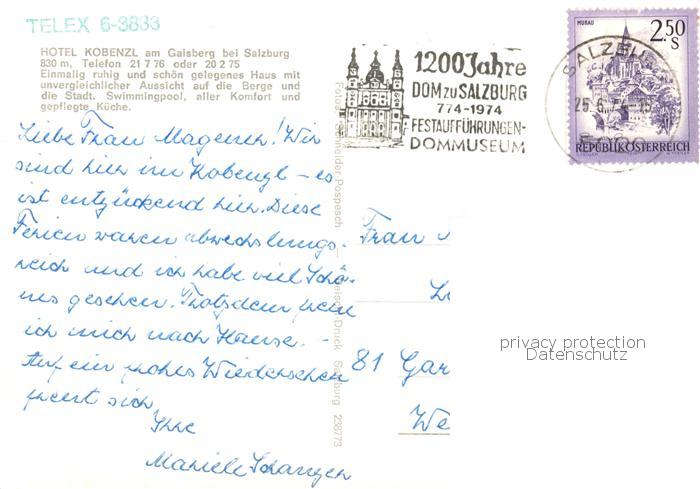 TELEX 6-3833
HOTEL KOBENZL am Gaisberg bei Salzburg
830 m, Telefon 21 7 76 oder 20 2 75
Einmalig ruhig und schön gelegenes Haus mit
unvergleichlicher Aussicht auf die Berge und
die Stadt. Swimmingpool, aller Komfort und
gepflegte Küche.
1200 Jahre
DOM zu SALZBURG
774-1974
FESTAUFFÜHRUNGEN-
DOMMUSEUM
MURAU
2.50
S
REPUBLIK ÖSTERREICH
SALZBURG
25.6.74-15
Liebe Frau Magerer! Wir
sind hier im Kobenzl – es
ist entzückend hier. Diese
Ferien waren abwechslungs-
reich und ich habe viel Schö-
nes gesehen. Trotzdem freue
ich mich nach Hause. –
Auf ein frohes Wiedersehen
freut sich
Ihre
Mariele
Frau
81 Gar
We
privacy protection
Datenschutz
Salzburg 238/73